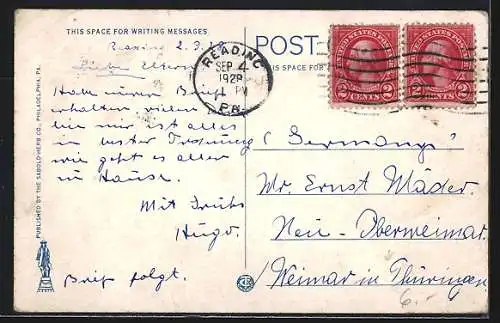 THIS SPACE FOR WRITING MESSAGES
Reading 2.9.28
Liebe Eltern
Habe euren Brief
erhalten, vielen
bei mir ist alles
in bester Ordnung
wie geht es allen
zu Hause.
Mit Gruß
Hugo.
Brief folgt.
PUBLISHED BY THE SABOLD-HERB CO., PHILADELPHIA, PA.
POST
THIS SPACE FOR
READING
SEP 4
1928
PM
PA.
UNITED STATES POSTAGE
2 CENTS 2
UNITED STATES POSTAGE
2 CENTS 2
(Germany)
Mr. Ernst Mäder.
Neu-Oberweimar.
Weimar in Thüringen
6.-